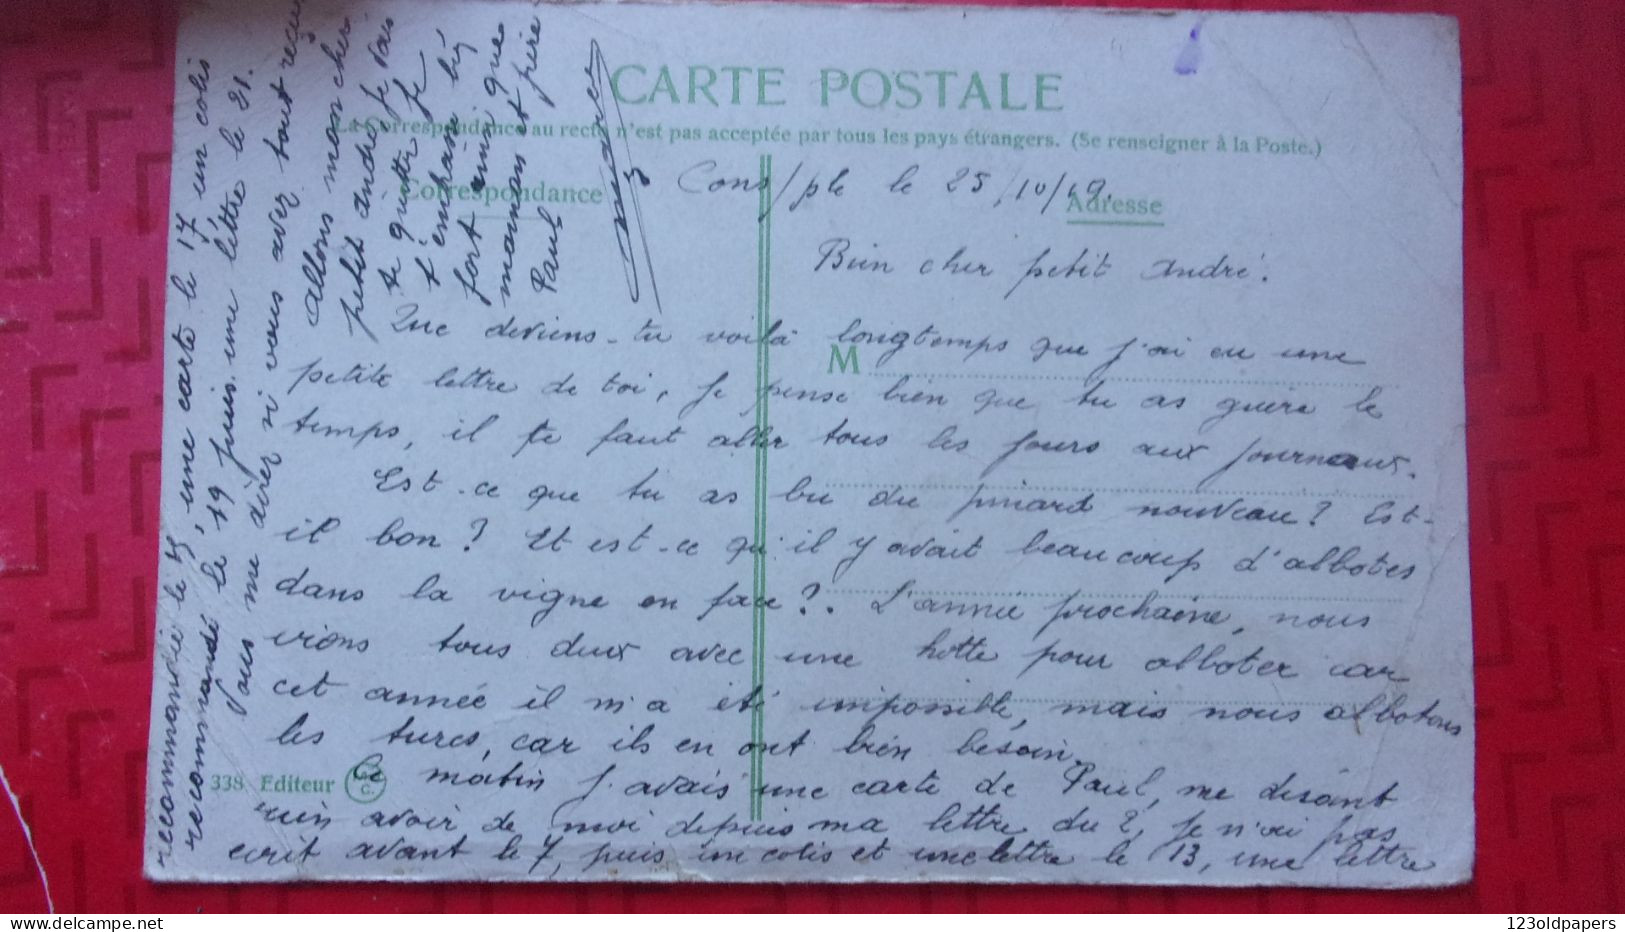 CARTE POSTALE
La Correspondance au recto n'est pas acceptée par tous les pays étrangers. (Se renseigner à la Poste.)
Correspondance
Adresse
Cons/ple le 25/10/19.
Bien cher petit André.
Que deviens-tu voilà longtemps que j'ai eu une
petite lettre de toi, je pense bien que tu as guère le
temps, il te faut aller tous les jours aux journaux.
Est-ce que tu as bu du pinard nouveau? Est-
il bon? Et est-ce qu'il y avait beaucoup d'albotes
dans la vigne en face?. L'année prochaine, nous
irions tous deux avec une hotte pour alboter car
cet année il m'a été impossible, mais nous albotons
les tures, car ils en ont bien besoin.
Ce matin j'avais une carte de Paul, me disant
rien avoir de moi depuis ma lettre du 2, je n'ai pas
ecrit avant le 7, puis un colis et une lettre le 13, une lettre
recommandée le 15, une carte le 17 un colis
recommandé le 19 puis une lettre le 21.
Vous me direz si vous avez tout reçu
allons mon cher
petit André je vais
te quitter je
t'embrasse bien
fort ainsi que
maman et père
Paul
M
338 Editeur
123oldpapers